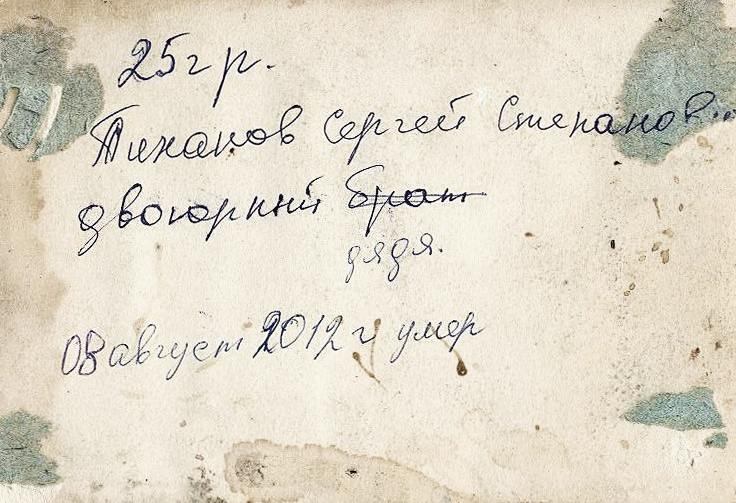 25гр.
Тиханов Сергей Степанов...
двоюрный ~~брат~~
дядя.
08 август 2012 г умер